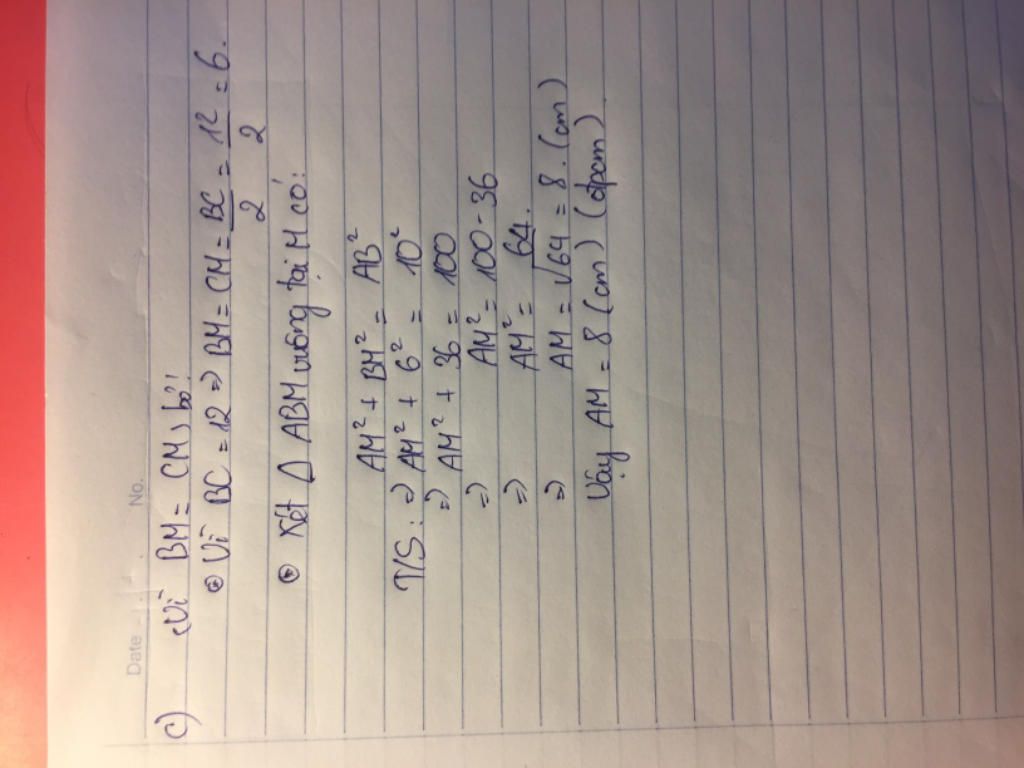 Date No.
c) Vì BM = CM, bỏ!
Vì BC = 12 => BM = CM = BC/2 = 12/2 = 6.
Xét Δ ABM vuông tại M có:
AM² + BM² = AB²
T/S: => AM² + 6² = 10²
=> AM² + 36 = 100
=> AM² = 100 - 36
=> AM² = 64.
=> AM = √64 = 8. (cm)
Vậy AM = 8 (cm) (đpcm)